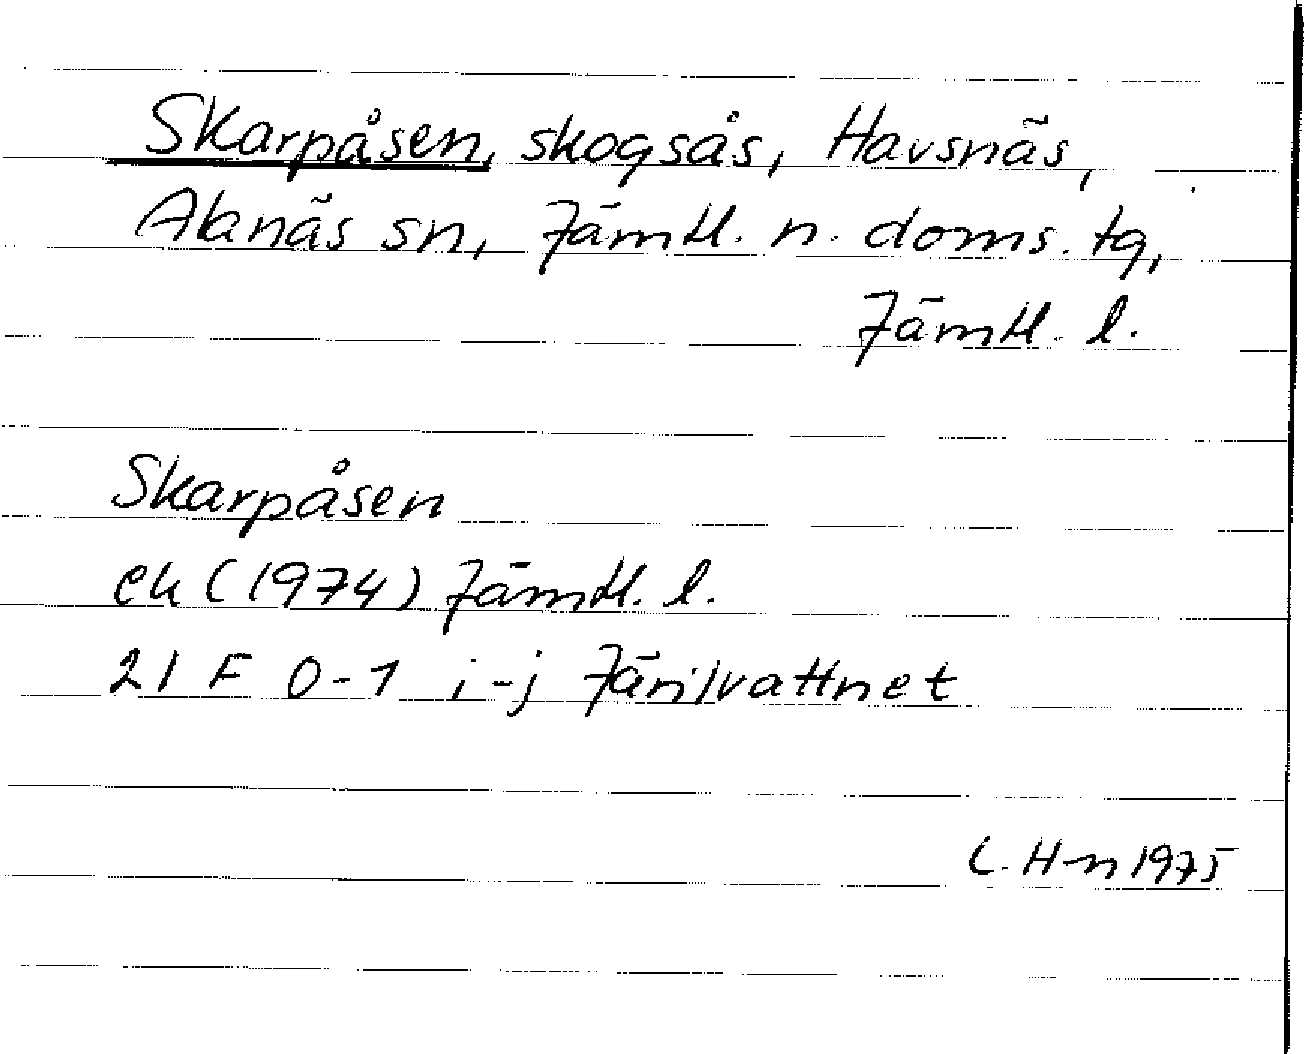 Skarpåsen, skogsås, Havsnäs,
Alanäs sn, Jämtl. n. doms. tg,
Jämtl. l.
Skarpåsen
ek (1974) Jämtl. l.
21 F 0-1 i-j Järilvattnet
C. H-n 1975